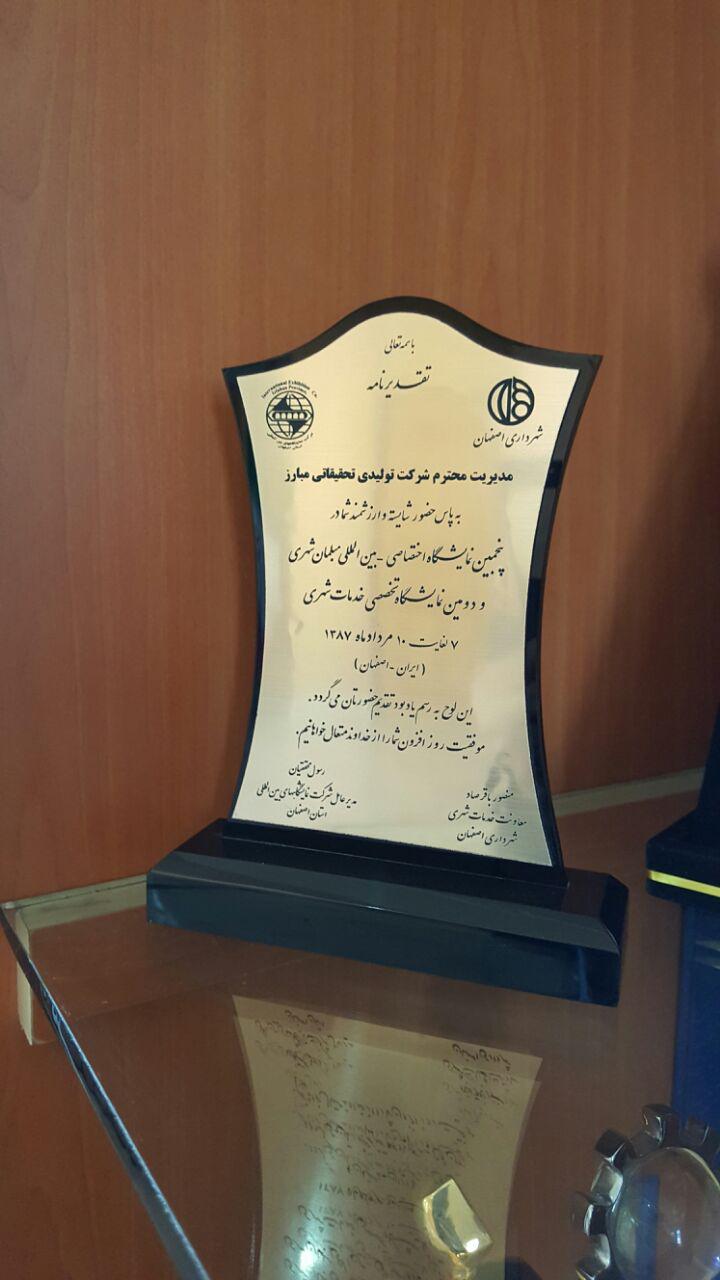 باسمه تعالی
تقدیرنامه
International Exhibition Co.
Isfahan Province
شهرداری اصفهان
مدیریت محترم شرکت تولیدی تحقیقاتی مبارز
به پاس حضور شایسته و ارزشمند شما در
پنجمین نمایشگاه اختصاصی - بین المللی مبلمان شهری
و دومین نمایشگاه تخصصی خدمات شهری
۷ لغایت ۱۰ مرداد ماه ۱۳۸۷
(ایران - اصفهان)
این لوح به رسم یادبود تقدیم حضورتان می گردد.
موفقیت روز افزون شما را از خداوند متعال خواهانیم.
منصور باقر صاد
معاونت خدمات شهری
شهرداری اصفهان
رسول محققیان
مدیر عامل شرکت نمایشگاههای بین المللی
استان اصفهان